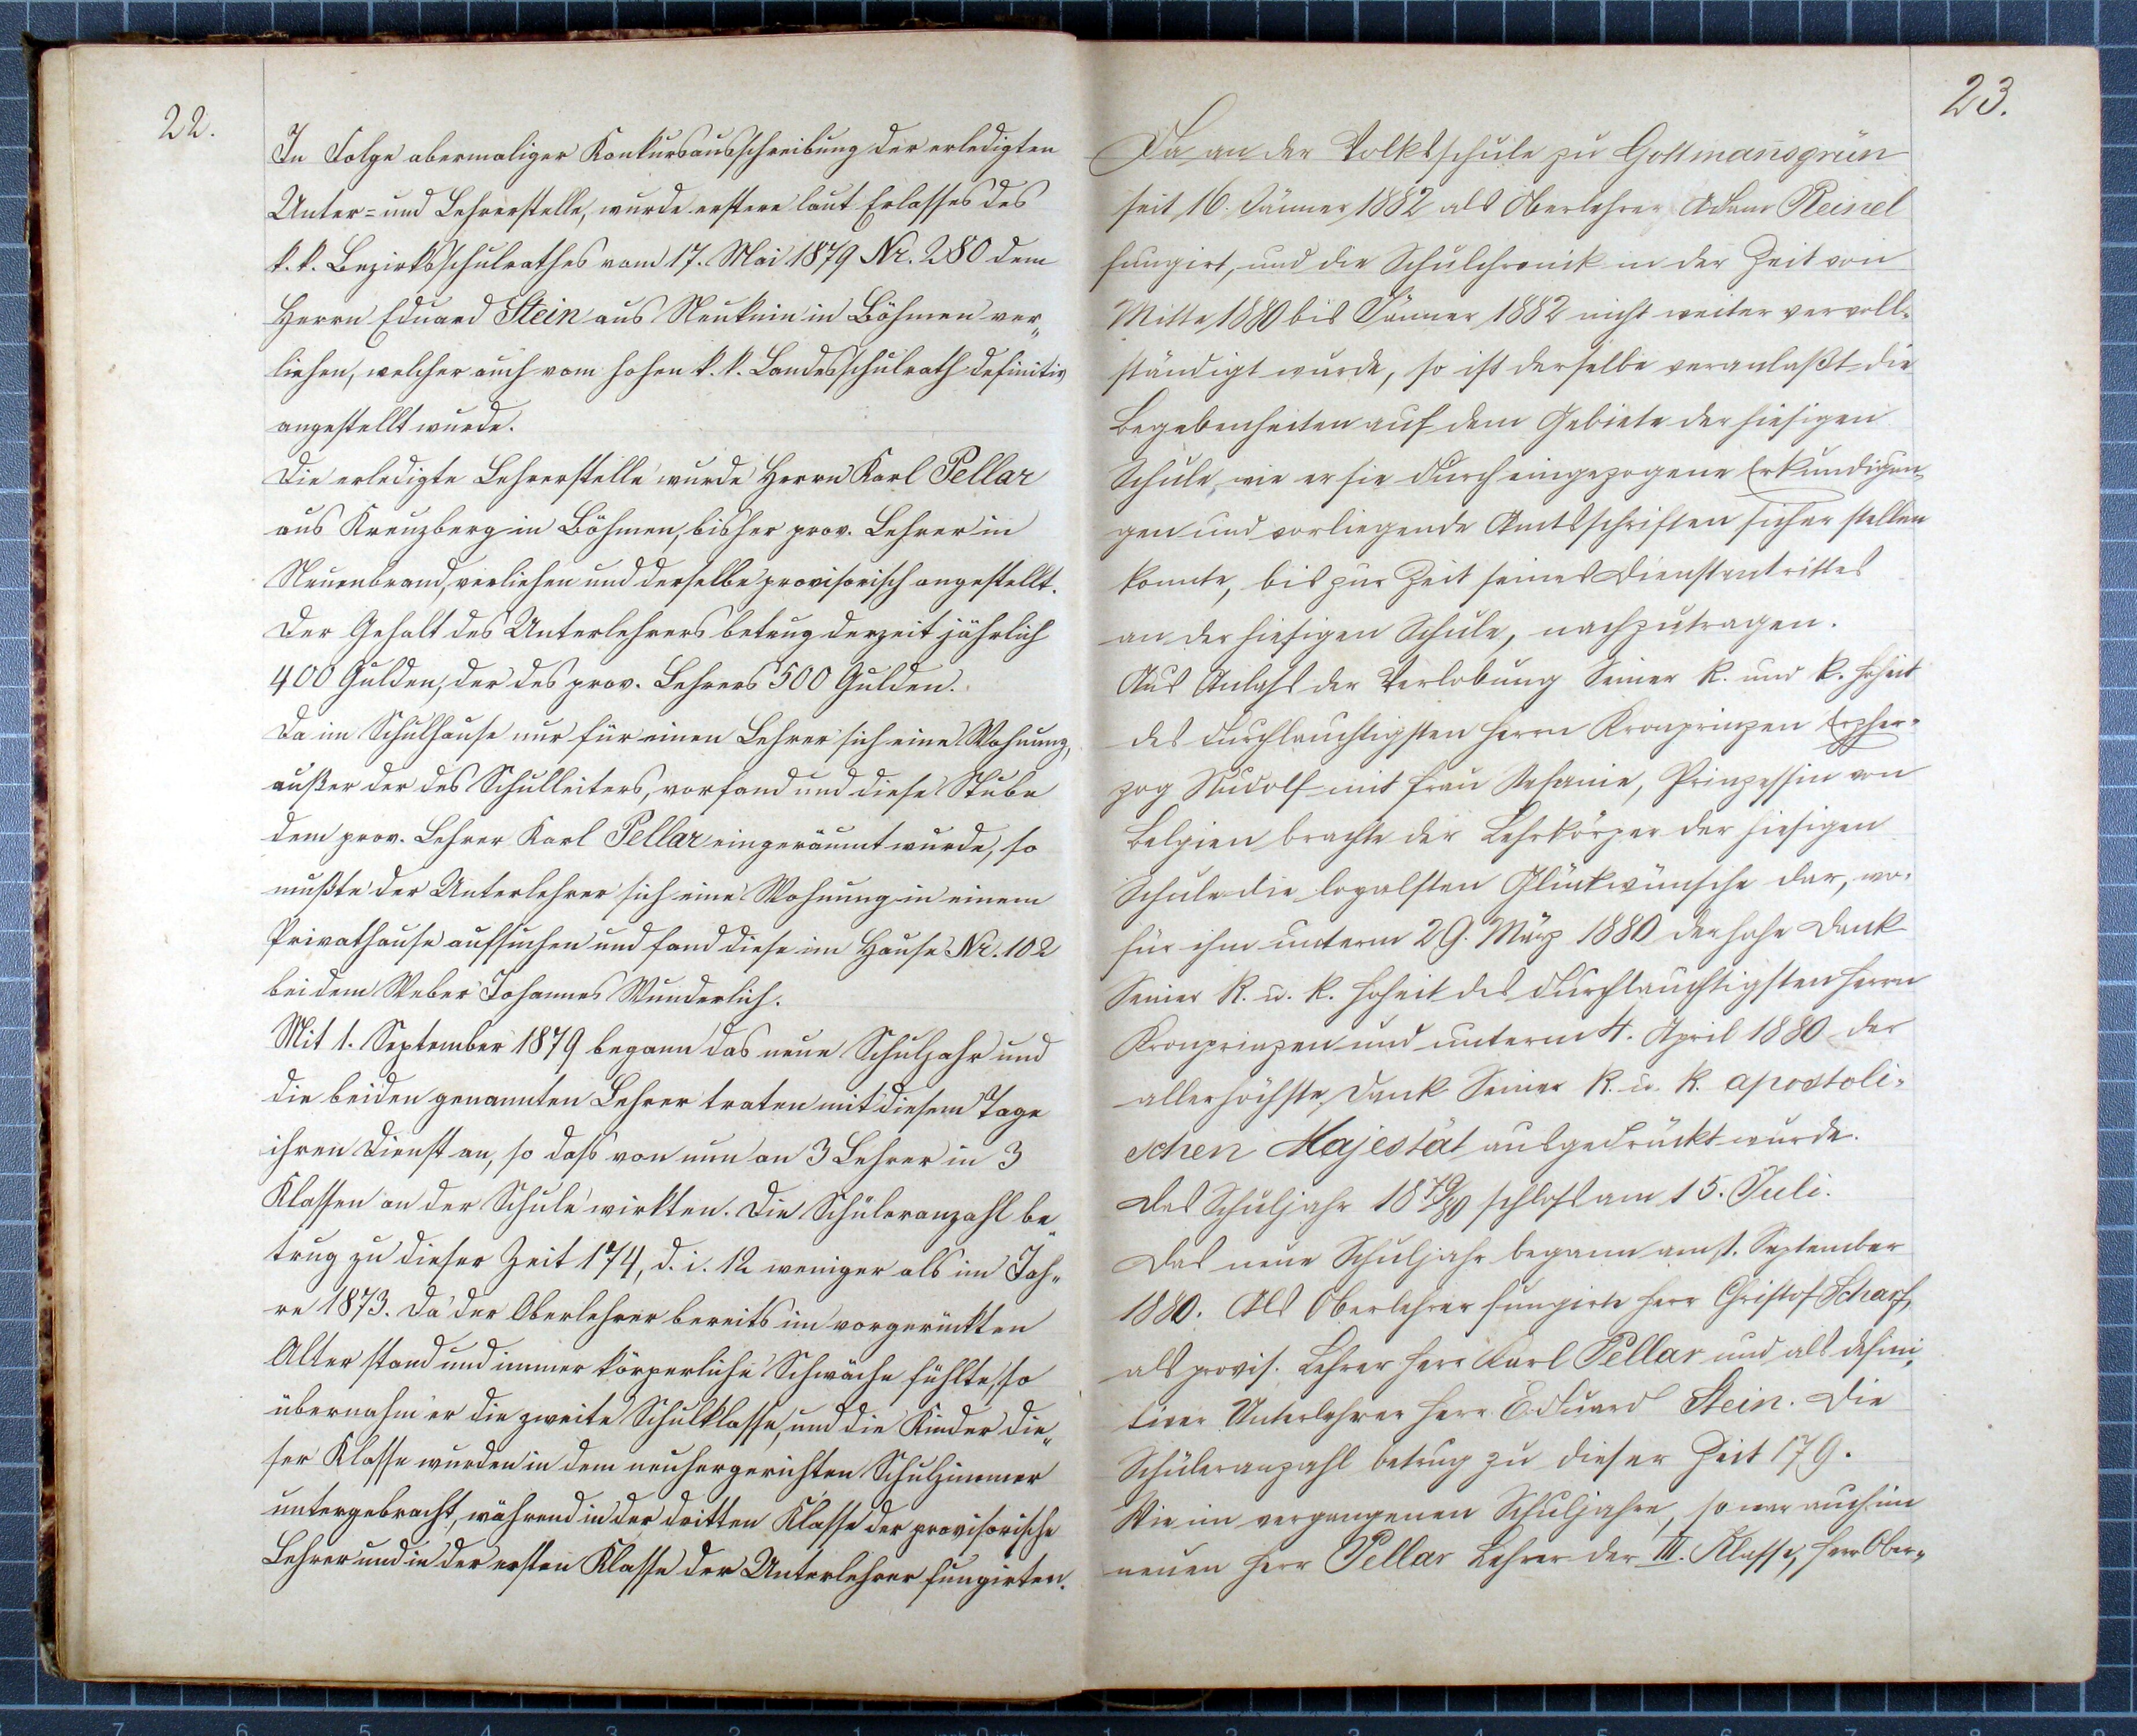 22.
In Folge abermaliger Konkursausschreibung der erledigten
Unter- und Lehrerstelle, wurde erstere laut Erlasses des
k. k. Bezirksschulrathes vom 17. Mai 1879 Nr. 280 dem
Herrn Eduard Stein aus Neuknin in Böhmen ver„
liehen, welcher auch vom hohen k. k. Landesschulrath definitiv
angestellt wurde.
Die erledigte Lehrerstelle wurde Herrn Karl Pellar
aus Kreuzberg in Böhmen, bisher prov. Lehrer in
Neuenbrand, verliehen und derselbe provisorisch angestellt.
Der Gehalt des Unterlehrers betrug derzeit jährlich
400 Gulden, der des prov. Lehrers 500 Gulden.
Da im Schulhause nur für einen Lehrer sich eine Wohnung,
außer der des Schulleiters, vorfand und diese Stube
dem prov. Lehrer Karl Pellar eingeräumt wurde, so
mußte der Unterlehrer sich eine Wohnung in einem
Privathause aufsuchen und fand diese im Hause Nr. 102
bei dem Weber Johannes Wunderlich.
Mit 1. September 1879 begann das neue Schuljahr und
die beiden genannten Lehrer traten mit diesem Tage
ihren Dienst an, so daß von nun an 3 Lehrer in 3
Klassen an der Schule wirkten. Die Schüleranzahl be„
trug zu dieser Zeit 174, d. i. 12 weniger als im Jah„
re 1873. Da der Oberlehrer bereits im vorgerückten
Alter stand und immer körperliche Schwäche fühlte, so
übernahm er die zweite Schulklasse, und die Kinder die„
ser Klasse wurden in dem neuhergerichten Schulzimmer
untergebracht, während in der dritten Klasse der provisorische
Lehrer und in der ersten Klasse der Unterlehrer fungirten.
23.
Da an der Volksschule zu Gottmannsgrün
seit 16. Jänner 1882 als Oberlehrer Adam Reinel
fungirt, und die Schulchronik in der Zeit von
Mitte 1880 bis Jänner 1882 nicht weiter vervoll-
ständigt wurde, so ist derselbe veranlaßt die
Begebenheiten auf dem Gebiete der hiesigen
Schule, wie er sie durch eingezogene Erkundigun-
gen und vorliegende Amtsschriften sicher stellen
konnte, bis zur Zeit seines Dienstantrittes
an der hiesigen Schule, nachzutragen.
Aus Anlaß der Verlobung Seiner k. und k. Hoheit
des durchlauchtigsten Herrn Kronprinzen Erzher-
zog Rudolf mit Frau Stefanie, Prinzessin von
Belgien brachte der Lehrkörper der hiesigen
Schule die loyalsten Glückwünsche dar, wo-
für ihm unterm 29. März 1880 der hohe Dank
Seiner k. u. k. Hoheit des durchlauchtigsten Herrn
Kronprinzen und unterm 4. April 1880 der
allerhöchste Dank Seiner k. u. k. apostoli-
schen Majestät ausgedrückt wurde.
Das Schuljahr 1879/80 schloß am 15. Juli.
Das neue Schuljahr begann am 1. September
1880. Als Oberlehrer fungirte Herr Christof Scharf,
als provis. Lehrer Herr Karl Pellar und als defini-
tiver Unterlehrer Herr Eduard Stein. Die
Schüleranzahl betrug zu dieser Zeit 179.
Wie im vergangenen Schuljahre, so war auch im
neuen Herr Pellar Lehrer der III. Klasse, Herr Ober-